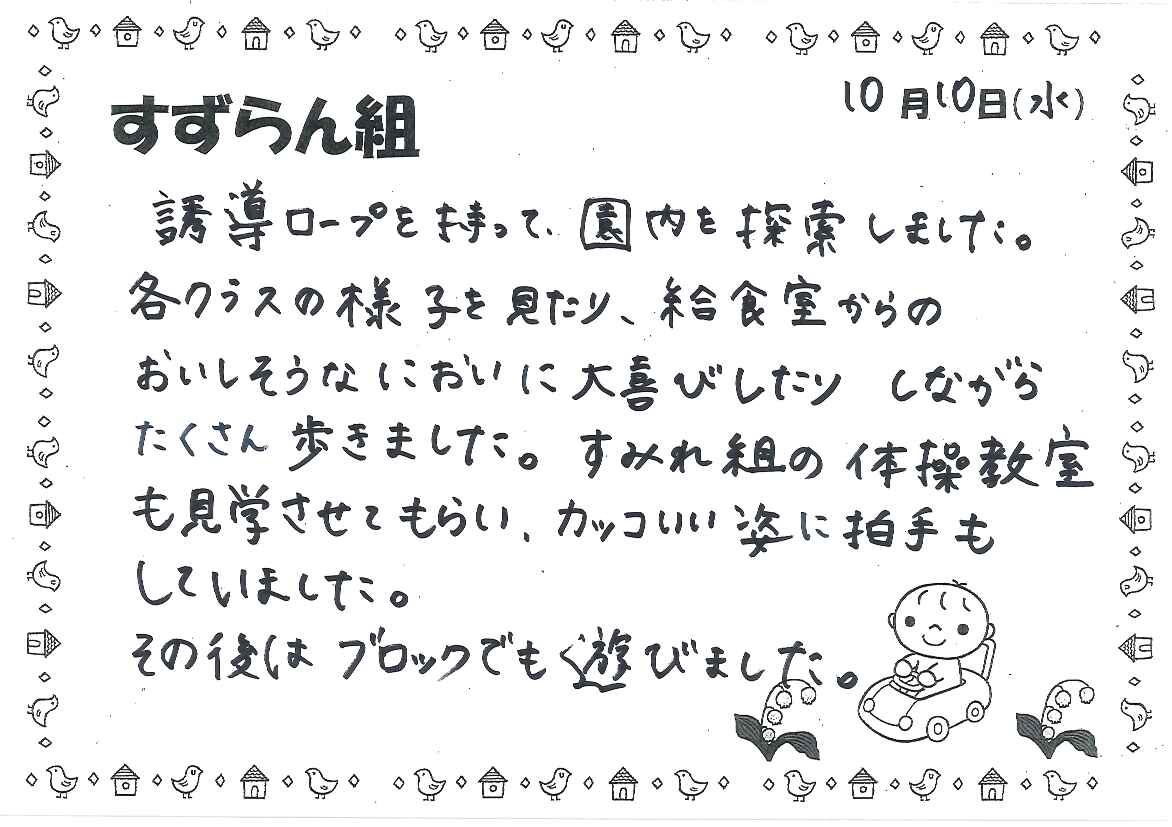 すずらん組
10月10日(水)
誘導ロープを持って、園内を探索しました。
各クラスの様子を見たり、給食室からの
おいしそうなにおいに大喜びしたり しながら
たくさん歩きました。すみれ組の体操教室
も見学させてもらい、カッコいい姿に拍手も
していました。
その後はブロックでも遊びました。